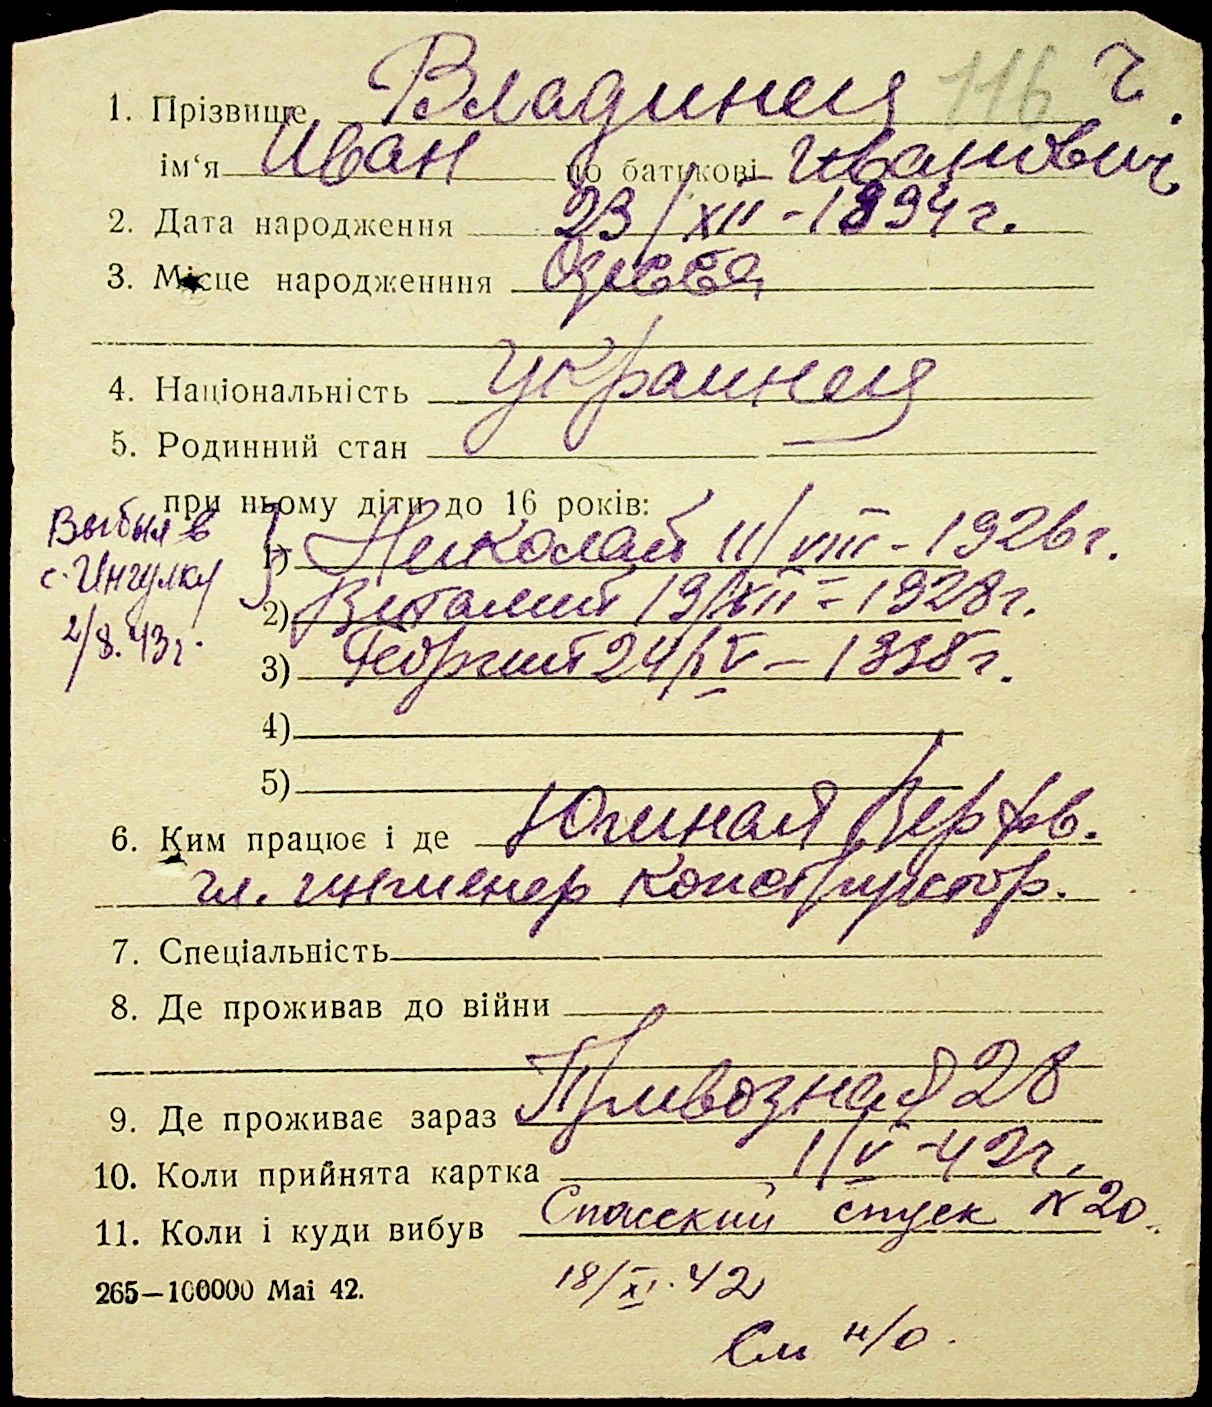 116 ч.
1. Прізвище Владинец
ім‘я Иван по батькові Иванович
2. Дата народження 23/XII - 1894 г.
3. Місце народженння Одесса
4. Національність украинец
5. Родинний стан
при ньому діти до 16 років:
Выбыл в
с. Ингулку
2/8. 43 г.
1) Николай 11/VIII - 1926 г.
2) Виталий 19/XII - 1928 г.
3) Георгий 24/IV - 1938 г.
4)
5)
6. Ким працює і де Южная Верфь.
гл. инженер конструктор.
7. Спеціальність
8. Де проживав до війни
9. Де проживає зараз Привозная 28
10. Коли прийнята картка 1/V - 42 г.
11. Коли і куди вибув Спасский спуск N 20.
265—100000 Mai 42.
18/XI. 42
См н/о.